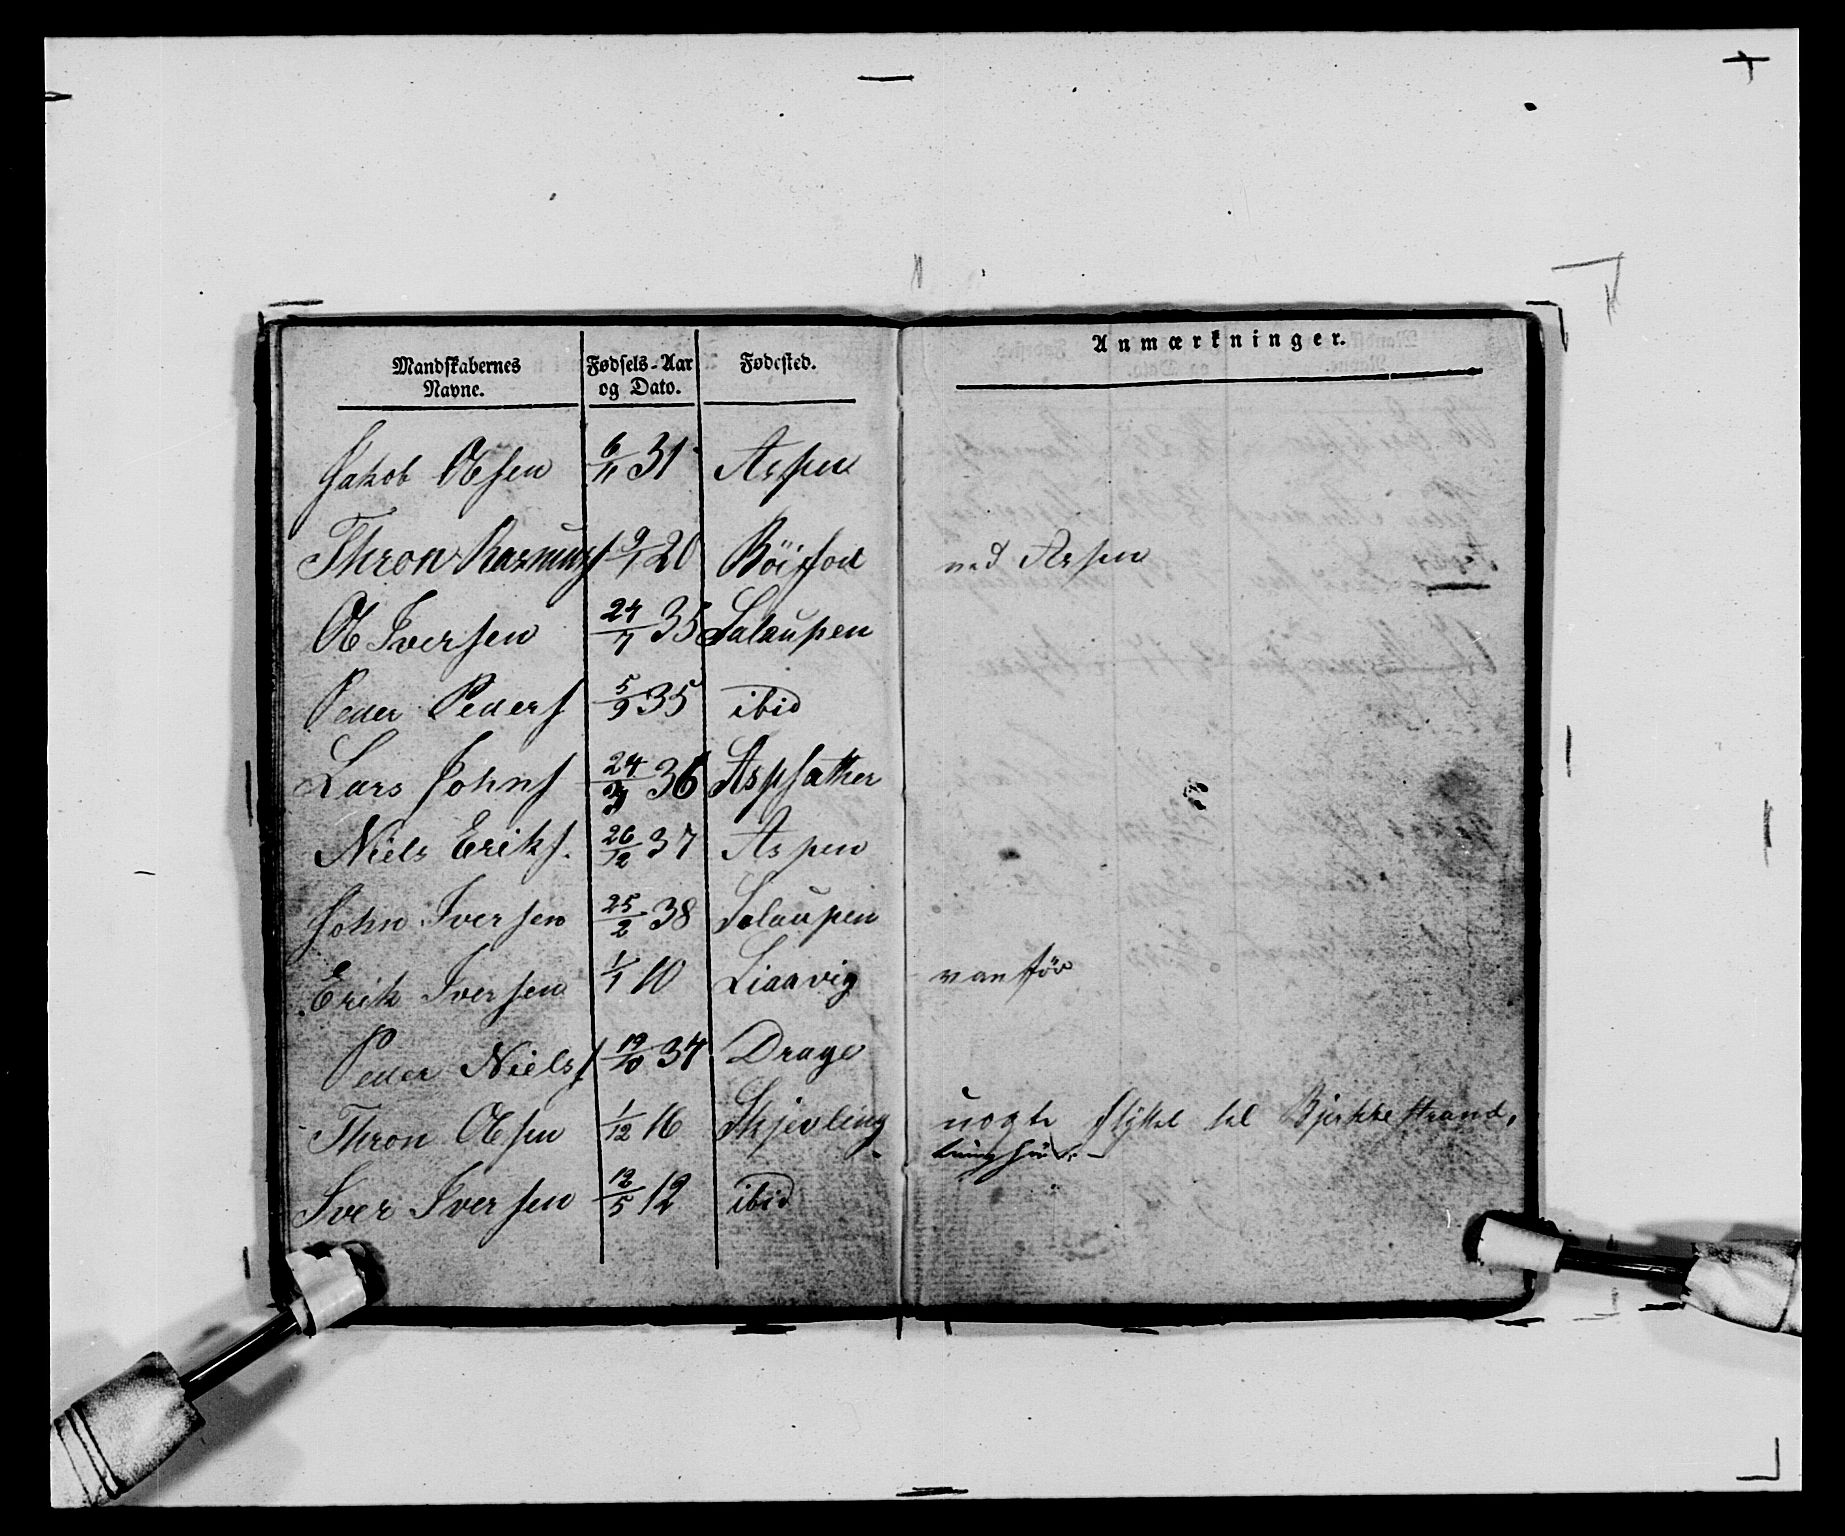 Mandskabernes Navne. Fødsels-Aar og Dato. Fødested. Anmærkninger.
Jakob Olsen 6/11 31 Aspen
Thron Rasmuss 9/1 20 Böifod ved Aspen
Ol Iversen 24/7 35 Salaupen
Peder Peders 5/9 35 ibid
Lars Johns 24/3 36 Aspsather
Niels Eriks. 26/12 37 Aspen
John Iversen 25/2 38 Salaupen
Erik Iversen 1/1 10 Liaavig vanför
Peder Niels 19/10 34 Drage
Thron Olsen 1/12 16 Skjevling flyttet til Bjerkestrand,
Iver Iversen 12/5 12 ibid